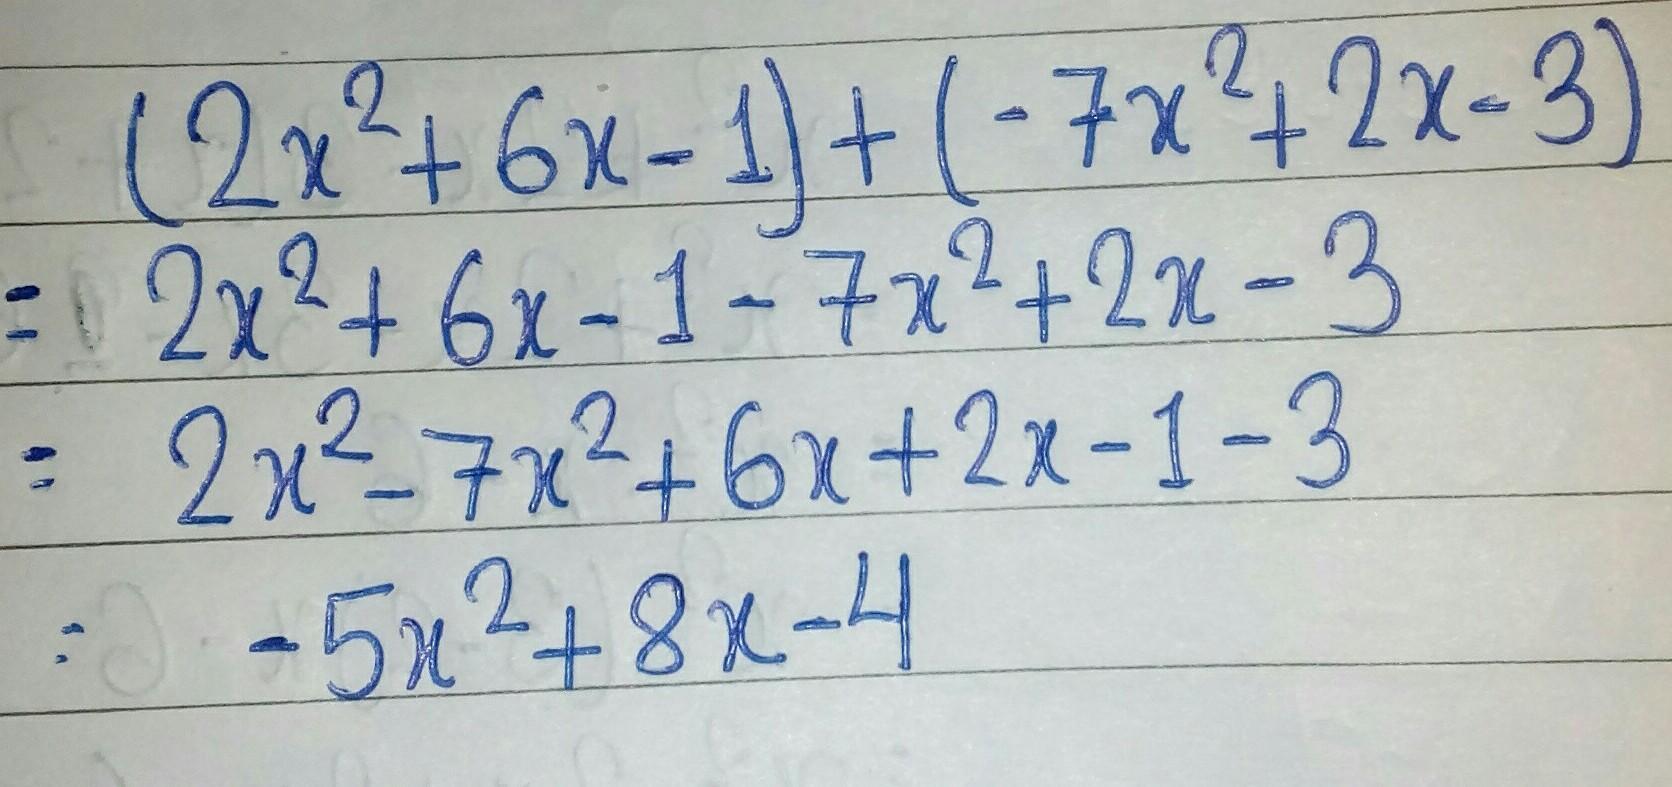 (2x²+6x-1)+(-7x²+2x-3)
= 2x²+6x-1-7x²+2x-3
= 2x²-7x²+6x+2x-1-3
= -5x²+8x-4